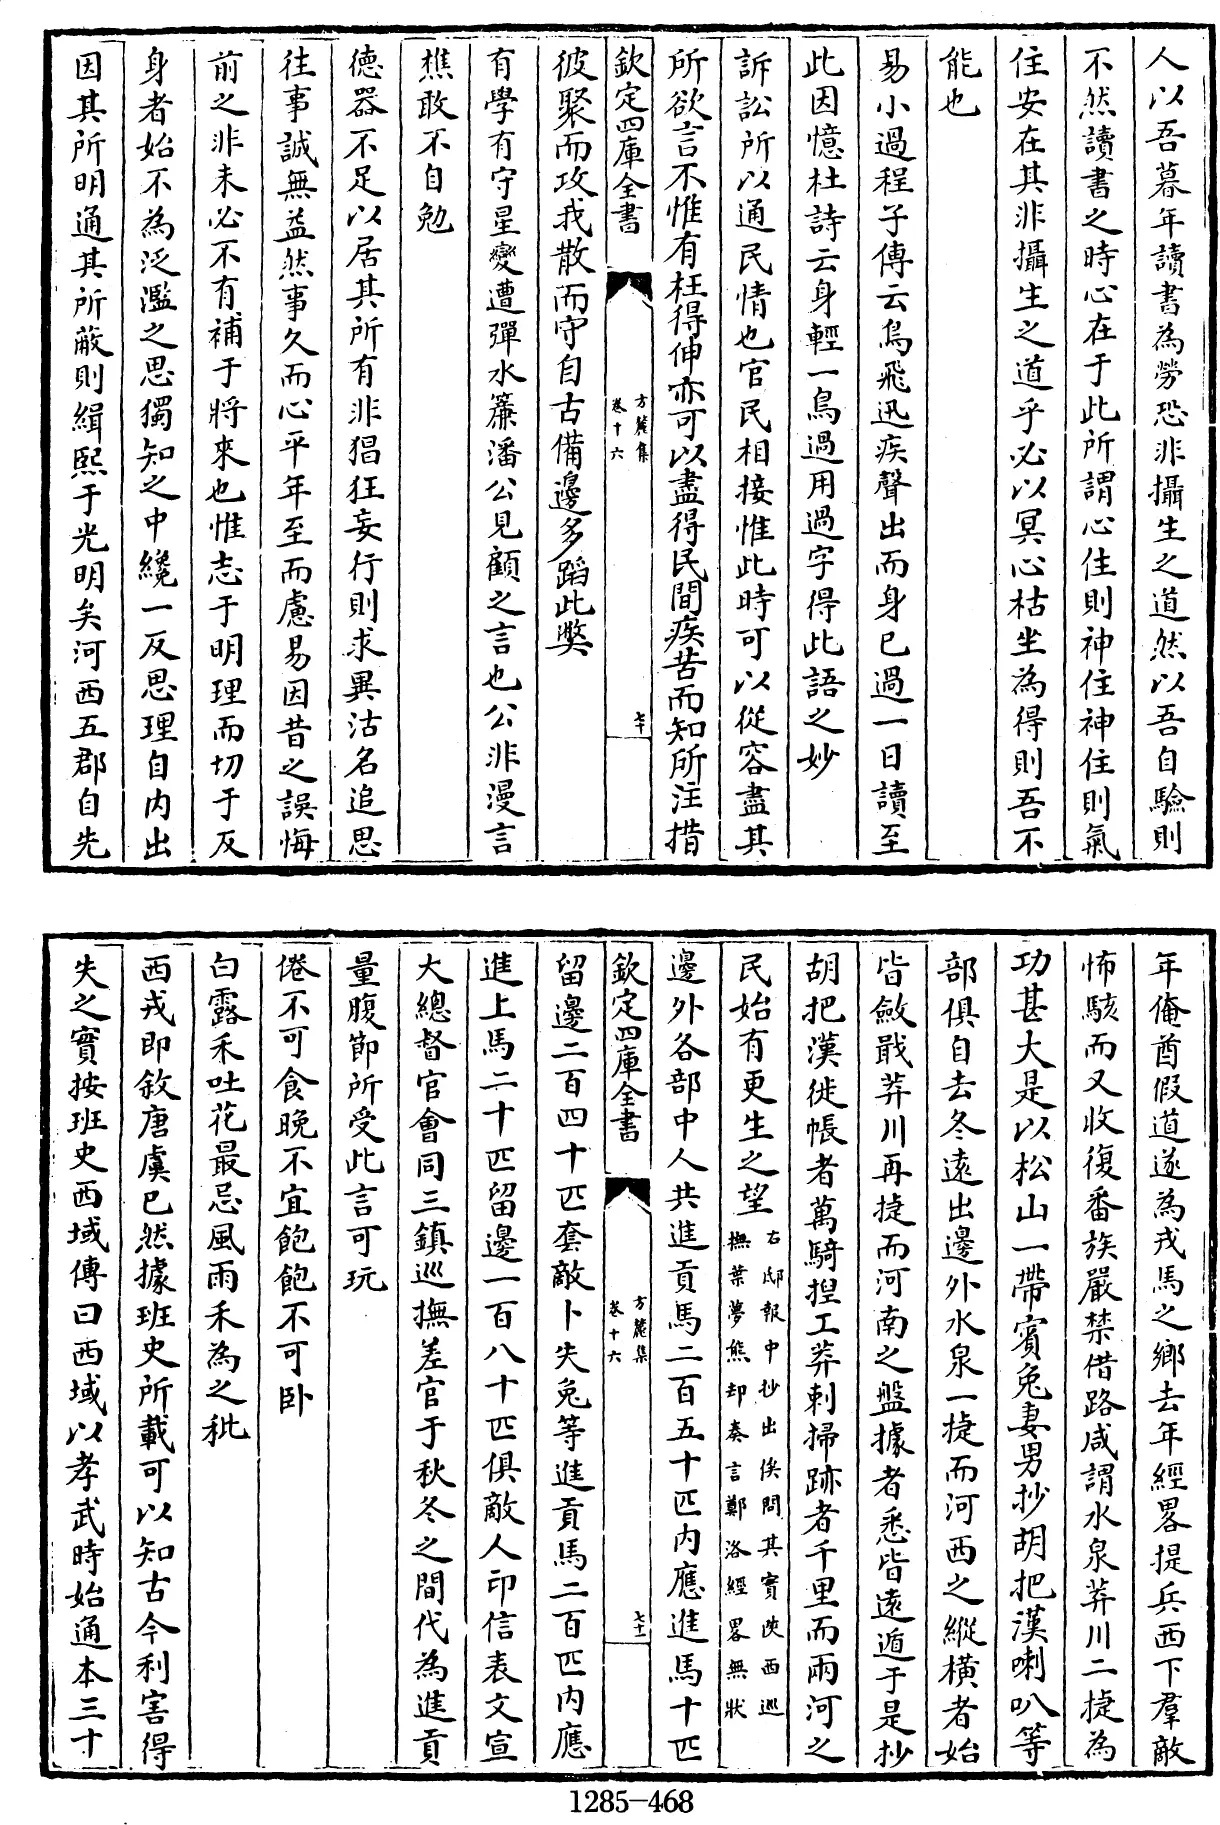 人以吾暮年讀書為勞恐非攝生之道然以吾自驗則
不然讀書之時心在于此所謂心住則神住神住則氣
住安在其非攝生之道乎必以冥心枯坐為得則吾不
能也
易小過程子傳云鳥飛迅疾聲出而身已過一日讀至
此因憶杜詩云身輕一鳥過用過字得此語之妙
訴訟所以通民情也官民相接惟此時可以從容盡其
所欲言不惟有枉得伸亦可以盡得民間疾苦而知所注措
欽定四庫全書
方麓集
卷十六
七十
彼聚而攻我散而守自古備邊多蹈此獘
有學有守星變遭彈水簾潘公見顧之言也公非漫言
樵敢不自勉
德器不足以居其所有非猖狂妄行則求異沽名追思
往事誠無益然事久而心平年至而慮易因昔之誤悔
前之非未必不有補于將來也惟志于明理而切于反
身者始不為泛濫之思獨知之中纔一反思理自内出
因其所明通其所蔽則緝熙于光明矣河西五郡自先
年俺酋假道遂為戎馬之鄉去年經畧提兵西下羣敵
怖駭而又收復番族嚴禁借路咸謂水泉莽川二捷為
功甚大是以松山一帶賓兔妻男抄胡把漢喇叭等
部俱自去冬遠出邊外水泉一捷而河西之縱横者始
皆斂戢莽川再捷而河南之盤據者悉皆遠遁于是抄
胡把漢徙帳者萬騎揑工莽剌掃跡者千里而兩河之
民始有更生之望
右邸報中抄出俟問其實陜西巡
撫葉夢熊却奏言鄭洛經畧無狀
邊外各部中人共進貢馬二百五十匹内應進馬十匹
欽定四庫全書
方麓集
卷十六
七十一
留邊二百四十匹套敵卜失兔等進貢馬二百匹内應
進上馬二十匹留邊一百八十匹俱敵人印信表文宣
大總督官會同三鎮巡撫差官于秋冬之間代為進貢
量腹節所受此言可玩
倦不可食晚不宜飽飽不可卧
白露禾吐花最忌風雨禾為之秕
西戎即敘唐虞已然據班史所載可以知古今利害得
失之實按班史西域傳曰西域以孝武時始通本三十
1285-468